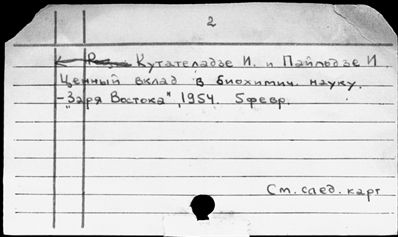 2
Кутателадзе И. и Пайльдзе И
Ценный вклад в биохимич. науку.
– "Заря Востока", 1954. 5 февр.
См. след. карт